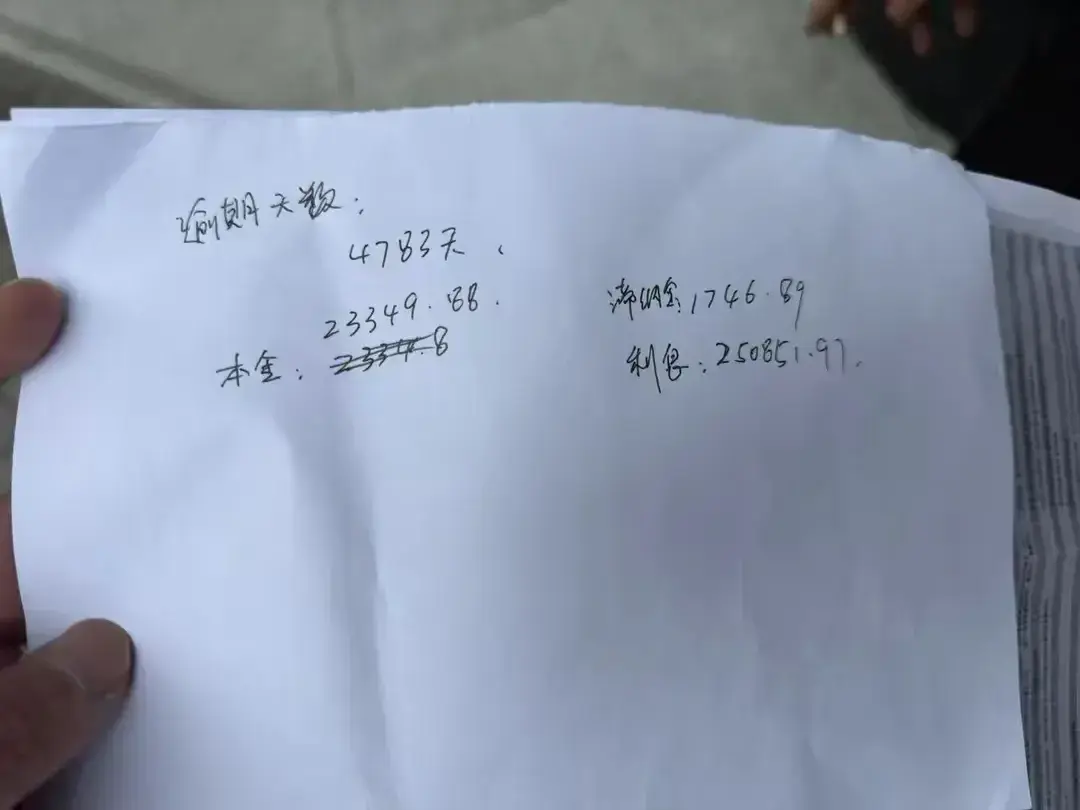 逾期天数:
4783天、
23349.88.
本金:
滞纳金:1746.89
利息:250851.97.